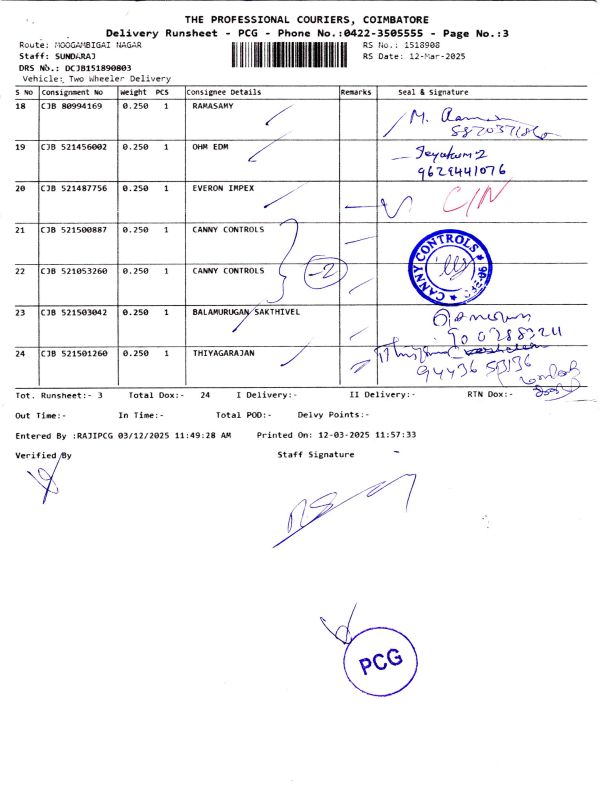 THE PROFESSIONAL COURIERS, COIMBATORE
Delivery Runsheet - PCG - Phone No.:0422-3505555 - Page No.:3
Route: MOOGAMBIGAI NAGAR RS No.: 1518908
Staff: SUNDARAJ RS Date: 12-Mar-2025
DRS No.: DCJB151890803
Vehicle: Two Wheeler Delivery
S No Consignment No Weight PCS Consignee Details Remarks Seal & Signature
18 CJB 80994169 0.250 1 RAMASAMY M.
19 CJB 521456002 0.250 1 OHM EDM
9629441076
20 CJB 521487756 0.250 1 EVERON IMPEX C/N
21 CJB 521500887 0.250 1 CANNY CONTROLS
CANNY CONTROLS
22 CJB 521053260 0.250 1 CANNY CONTROLS -2
23 CJB 521503042 0.250 1 BALAMURUGAN SAKTHIVEL
24 CJB 521501260 0.250 1 THIYAGARAJAN
Tot. Runsheet:- 3 Total Dox:- 24 I Delivery:- II Delivery:- RTN Dox:-
Out Time:- In Time:- Total POD:- Delvy Points:-
Entered By :RAJIPCG 03/12/2025 11:49:28 AM Printed On: 12-03-2025 11:57:33
Verified By Staff Signature
PCG